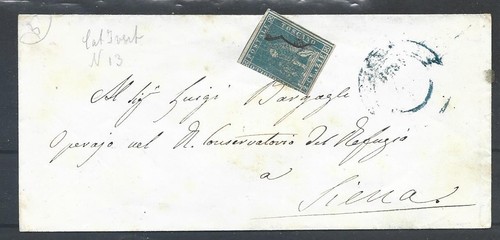 Cat Ivert
N 13
Al Sigr Luigi Bargagli
Operajo nel R. Conservatorio del Refugio
a
Siena